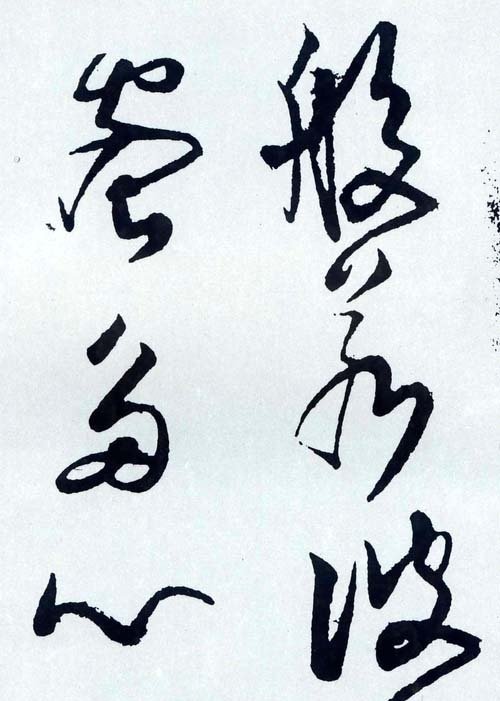 般若波
蜜多心